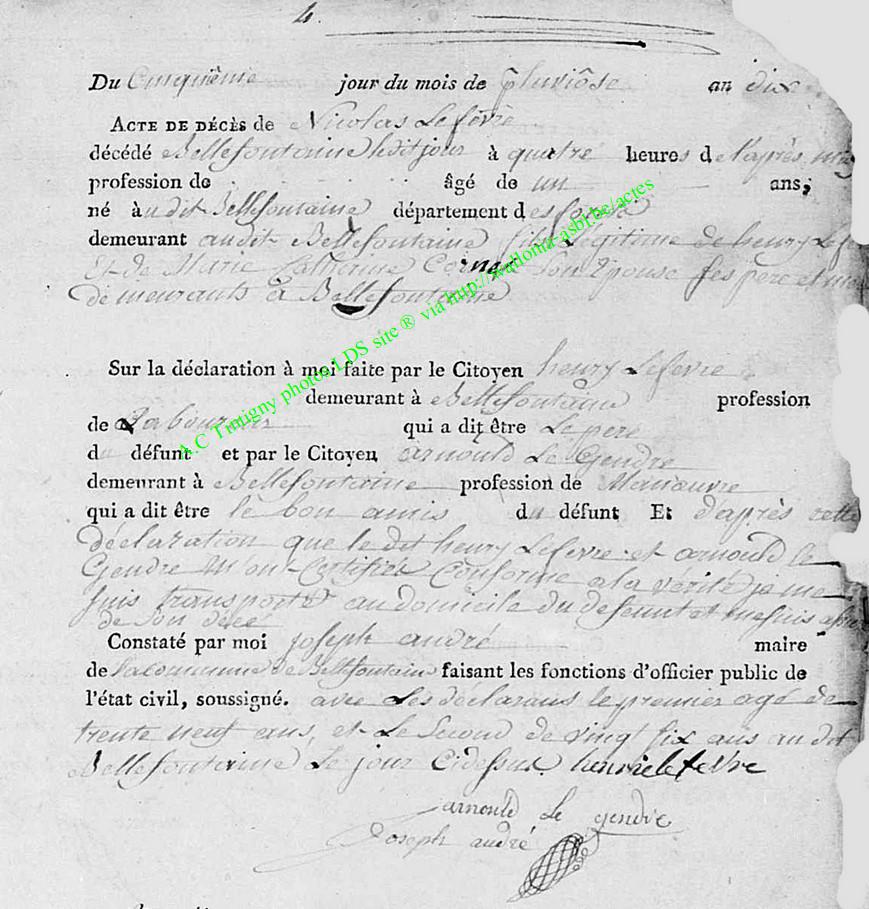 4.
Du Cinquième jour du mois de pluviôse an dix
ACTE DE DÉCÈS de Nicolas Lefevre
décédé Bellefontaine ledit jour à quatre heures d el'après midy
profession de âgé de un ans,
né à udit Bellefontaine département des forêts
demeurant audit Bellefontaine fils Legitime de henry Lefe
Et de Marie Catherine son Epouse ses père et
demeurants à Bellefontaine
Sur la déclaration à moi faite par le Citoyen henry Lefevre
demeurant à Bellefontaine profession
de Laboureur qui a dit être Le pere
du défunt et par le Citoyen arnould Le Gendre
demeurant à Bellefontaine profession de Manoeuvre
qui a dit être le bon amis du défunt Et d'après cette
déclaration que le dit henry Lefevre et arnould le
Gendre m'on Certifiée Conforme a la verité je me
suis transporté au domicile du defunt et me suis
de son décé
Constaté par moi joseph andré maire
de la commune de Bellefontaine faisant les fonctions d'officier public de
l'état civil, soussigné. avec Les déclarans le premier agé de
trente neuf ans, et Le Second de vingt six ans au dit
Bellefontaine Le jour Cidessus. henrie lefevre
arnould Le gendre
Joseph andré
A.C Tintigny photos LDS site ® via http://wallonia-asbl.be/actes